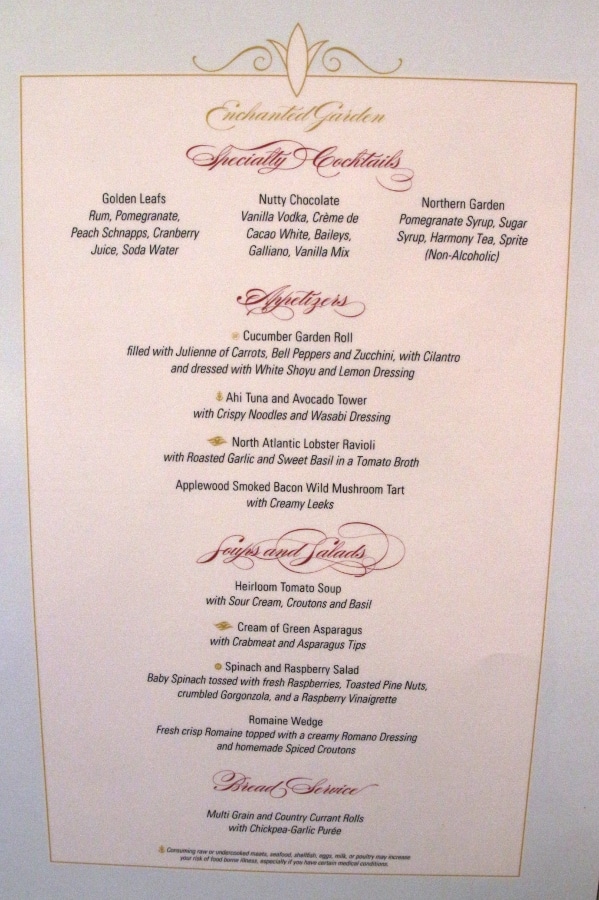 Enchanted Garden
Specialty Cocktails
Golden Leafs
Rum, Pomegranate,
Peach Schnapps, Cranberry
Juice, Soda Water
Nutty Chocolate
Vanilla Vodka, Crème de
Cacao White, Baileys,
Galliano, Vanilla Mix
Northern Garden
Pomegranate Syrup, Sugar
Syrup, Harmony Tea, Sprite
(Non-Alcoholic)
Appetizers
Cucumber Garden Roll
filled with Julienne of Carrots, Bell Peppers and Zucchini, with Cilantro
and dressed with White Shoyu and Lemon Dressing
Ahi Tuna and Avocado Tower
with Crispy Noodles and Wasabi Dressing
North Atlantic Lobster Ravioli
with Roasted Garlic and Sweet Basil in a Tomato Broth
Applewood Smoked Bacon Wild Mushroom Tart
with Creamy Leeks
Soups and Salads
Heirloom Tomato Soup
with Sour Cream, Croutons and Basil
Cream of Green Asparagus
with Crabmeat and Asparagus Tips
Spinach and Raspberry Salad
Baby Spinach tossed with fresh Raspberries, Toasted Pine Nuts,
crumbled Gorgonzola, and a Raspberry Vinaigrette
Romaine Wedge
Fresh crisp Romaine topped with a creamy Romano Dressing
and homemade Spiced Croutons
Bread Service
Multi Grain and Country Currant Rolls
with Chickpea-Garlic Purée
Consuming raw or undercooked meats, seafood, shellfish, eggs, milk, or poultry may increase
your risk of food borne illness, especially if you have certain medical conditions.